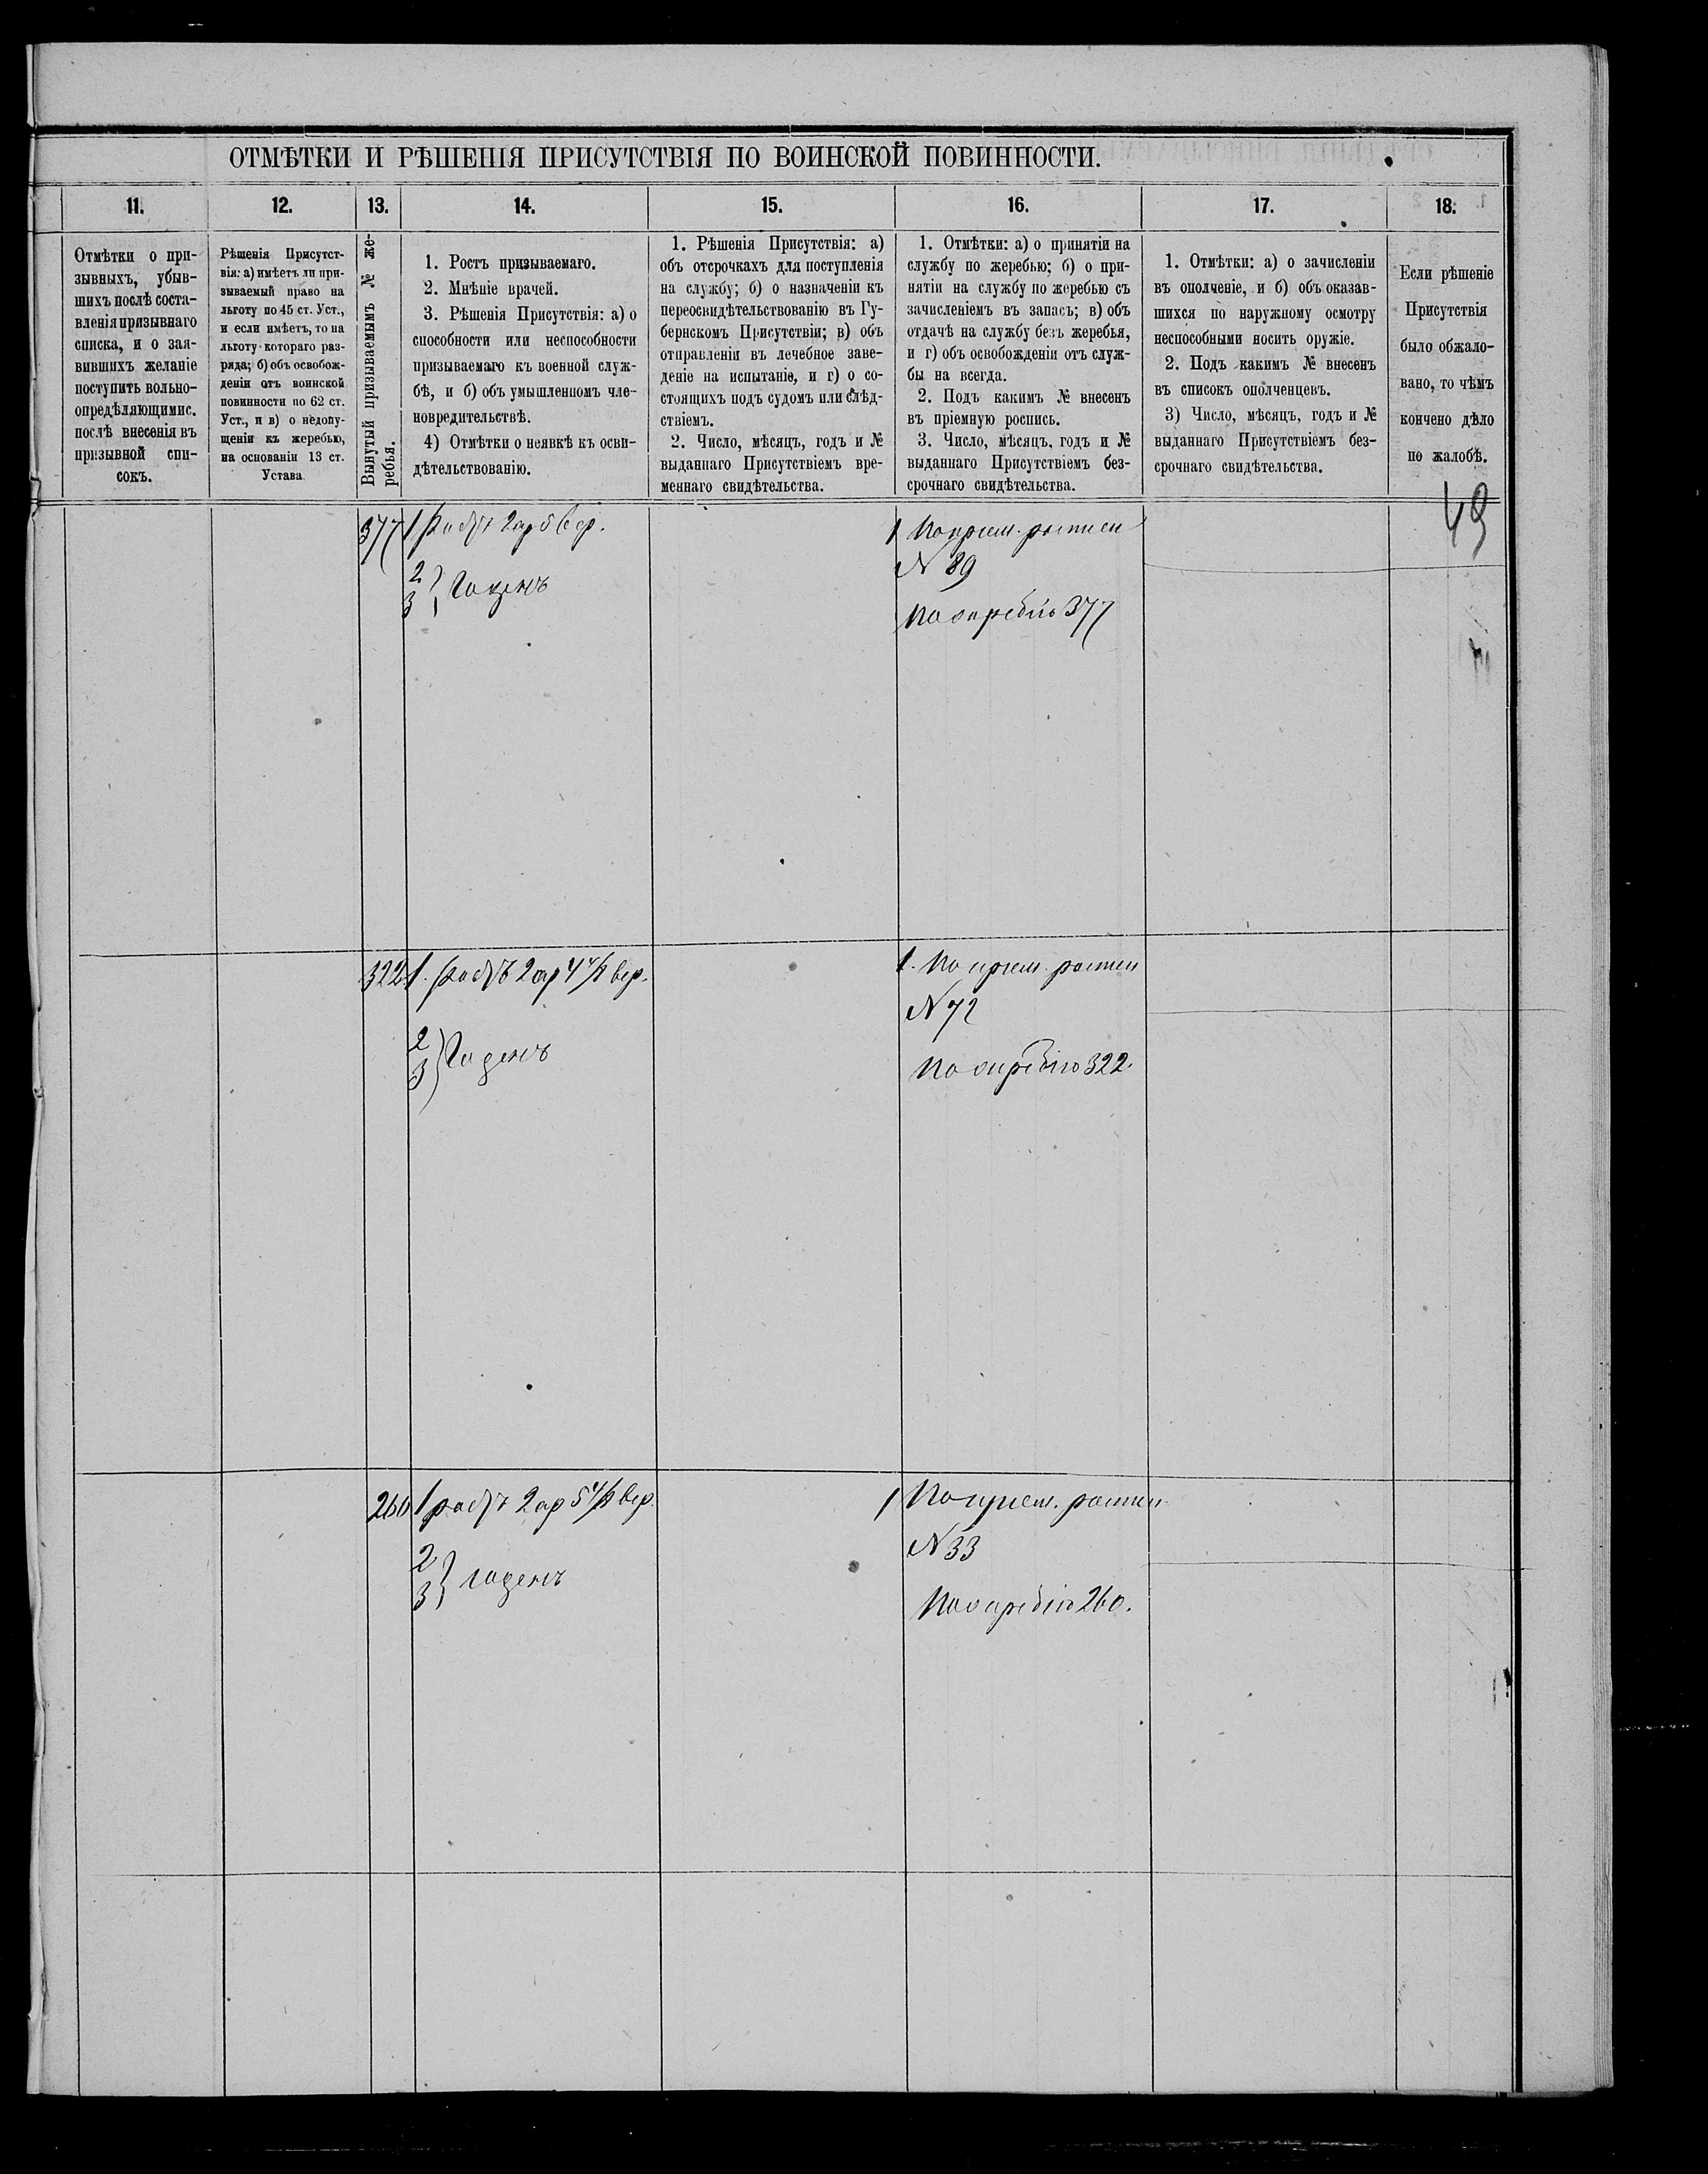 ОТМѢТКИ И РѢШЕНІЯ ПРИСУТСТВІЯ ПО ВОИНСКОЙ ПОВИННОСТИ.
11.
12.
13.
14.
15.
16.
17.
18.
Отмѣтки о при-
зывныхъ, убыв-
шихъ послѣ соста-
вленія призывнаго
списка, и о зая-
вившихъ желаніе
поступить вольно-
опредѣляющимис.
послѣ внесенія въ
призывной спи-
сокъ.
Рѣшенія Присутст-
вія: а) имѣетъ ли при-
зываемый право на
льготу по 45 ст. Уст.,
и если имѣетъ, то на
льготу котораго раз-
ряда; б) объ освобож-
деніи отъ воинской
повинности по 62 ст.
Уст., и в) о недопу-
щеніи къ жеребью,
на основаніи 13 ст.
Устава
Вынутый призываемымъ № же-
ребья.
1. Ростъ призываемаго.
2. Мнѣніе врачей.
3. Рѣшенія Присутствія: а) о
способности или неспособности
призываемаго къ военной служ-
бѣ, и б) объ умышленномъ чле-
новредительствѣ.
4) Отмѣтки о неявкѣ къ осви-
дѣтельствованію.
1. Рѣшенія Присутствія: а)
объ отсрочкахъ для поступленія
на службу; б) о назначеніи къ
переосвидѣтельствованію въ Гу-
бернскомъ Присутствіи; в) объ
отправленіи въ лечебное заве-
деніе на испытаніе, и г) о со-
стоящихъ подъ судомъ или слѣд-
ствіемъ.
2. Число, мѣсяцъ, годъ и №
выданнаго Присутствіемъ вре-
меннаго свидѣтельства.
1. Отмѣтки: а) о принятіи на
службу по жеребью; б) о при-
нятіи на службу по жеребью съ
зачисленіемъ въ запасъ; в) объ
отдачѣ на службу безъ жеребья,
и г) объ освобожденіи отъ служ-
бы на всегда.
2. Подъ какимъ № внесенъ
въ пріемную роспись.
3. Число, мѣсяцъ, годъ и №
выданнаго Присутствіемъ без-
срочнаго свидѣтельства.
1. Отмѣтки: а) о зачисленіи
въ ополченіе, и б) объ оказав-
шихся по наружному осмотру
неспособными носить оружіе.
2. Подъ какимъ № внесенъ
въ списокъ ополченцевъ.
3) Число, мѣсяцъ, годъ и №
выданнаго Присутствіемъ без-
срочнаго свидѣтельства.
Если рѣшеніе
Присутствія
было обжало-
вано, то чѣмъ
кончено дѣло
по жалобѣ.
49
377
1 Ростъ 2 ар 5 вер.
2
3 } Годенъ
1 По прием. росписи
N 89
По жребію 377
322
1. Ростъ 2 ар 4 1/2 вер.
2
3 } Годенъ
1. По прием. росписи
N 72
По жребію 322.
260
1 ростъ 2 ар 5 1/2 вер
2
3 } годенъ
1 По прием. росписи
N 33
По жребію 260.